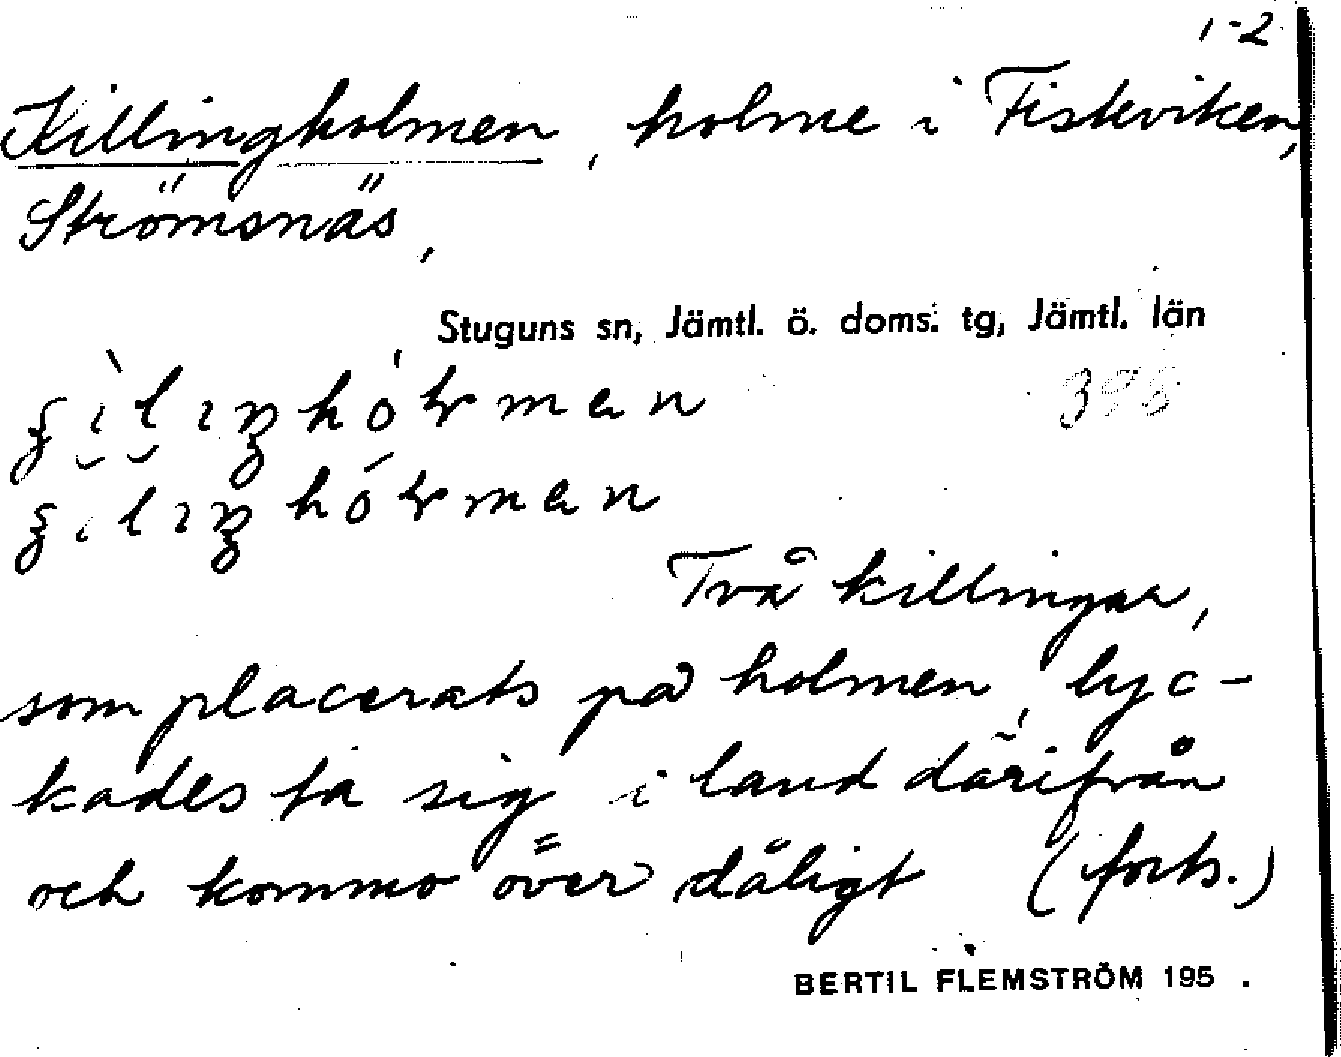 1-2
Killingholmen, holme i Fiskviken,
Strömsnäs,
Stuguns sn, Jämtl. ö. doms. tg, Jämtl. län
398
Två killingar,
som placerats på holmen, lyc-
kades ta sig i land därifrån
och kommo över dåligt (forts.)
BERTIL FLEMSTRÖM 195 .